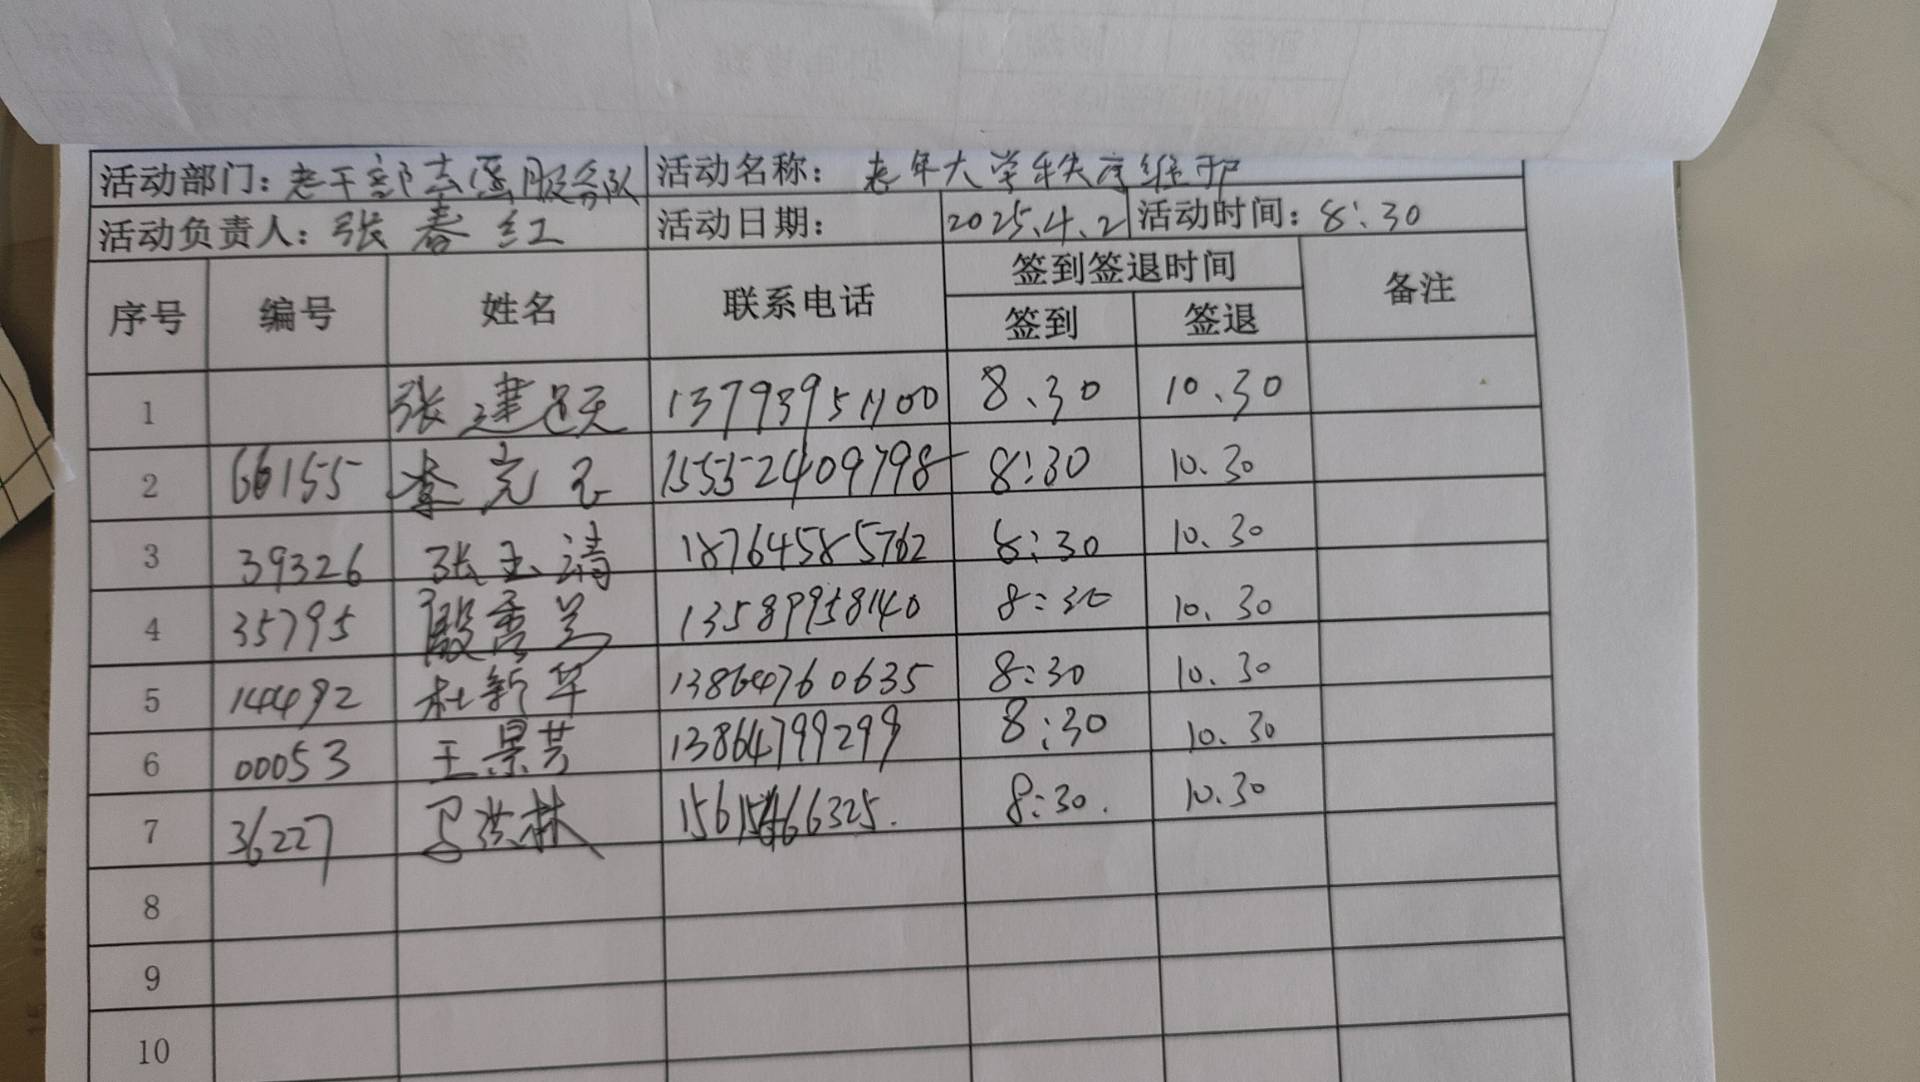 活动部门：老干部志愿服务队 活动名称：老年大学秩序维护
活动负责人：张春红 活动日期： 2025.4.2 活动时间：8:30
序号 编号 姓名 联系电话 签到签退时间 备注
签到 签退
1 张建跃 13793951100 8.30 10.30
2 66155 李克玉 15552409798 8:30 10.30
3 39326 张玉清 18764585762 8:30 10.30
4 35795 殷秀兰 13589958140 8:30 10.30
5 14492 杜新华 13864760635 8:30 10.30
6 00053 王景芳 13864799299 8:30 10.30
7 36227 马洪林 15615466325. 8:30. 10.30
8
9
10